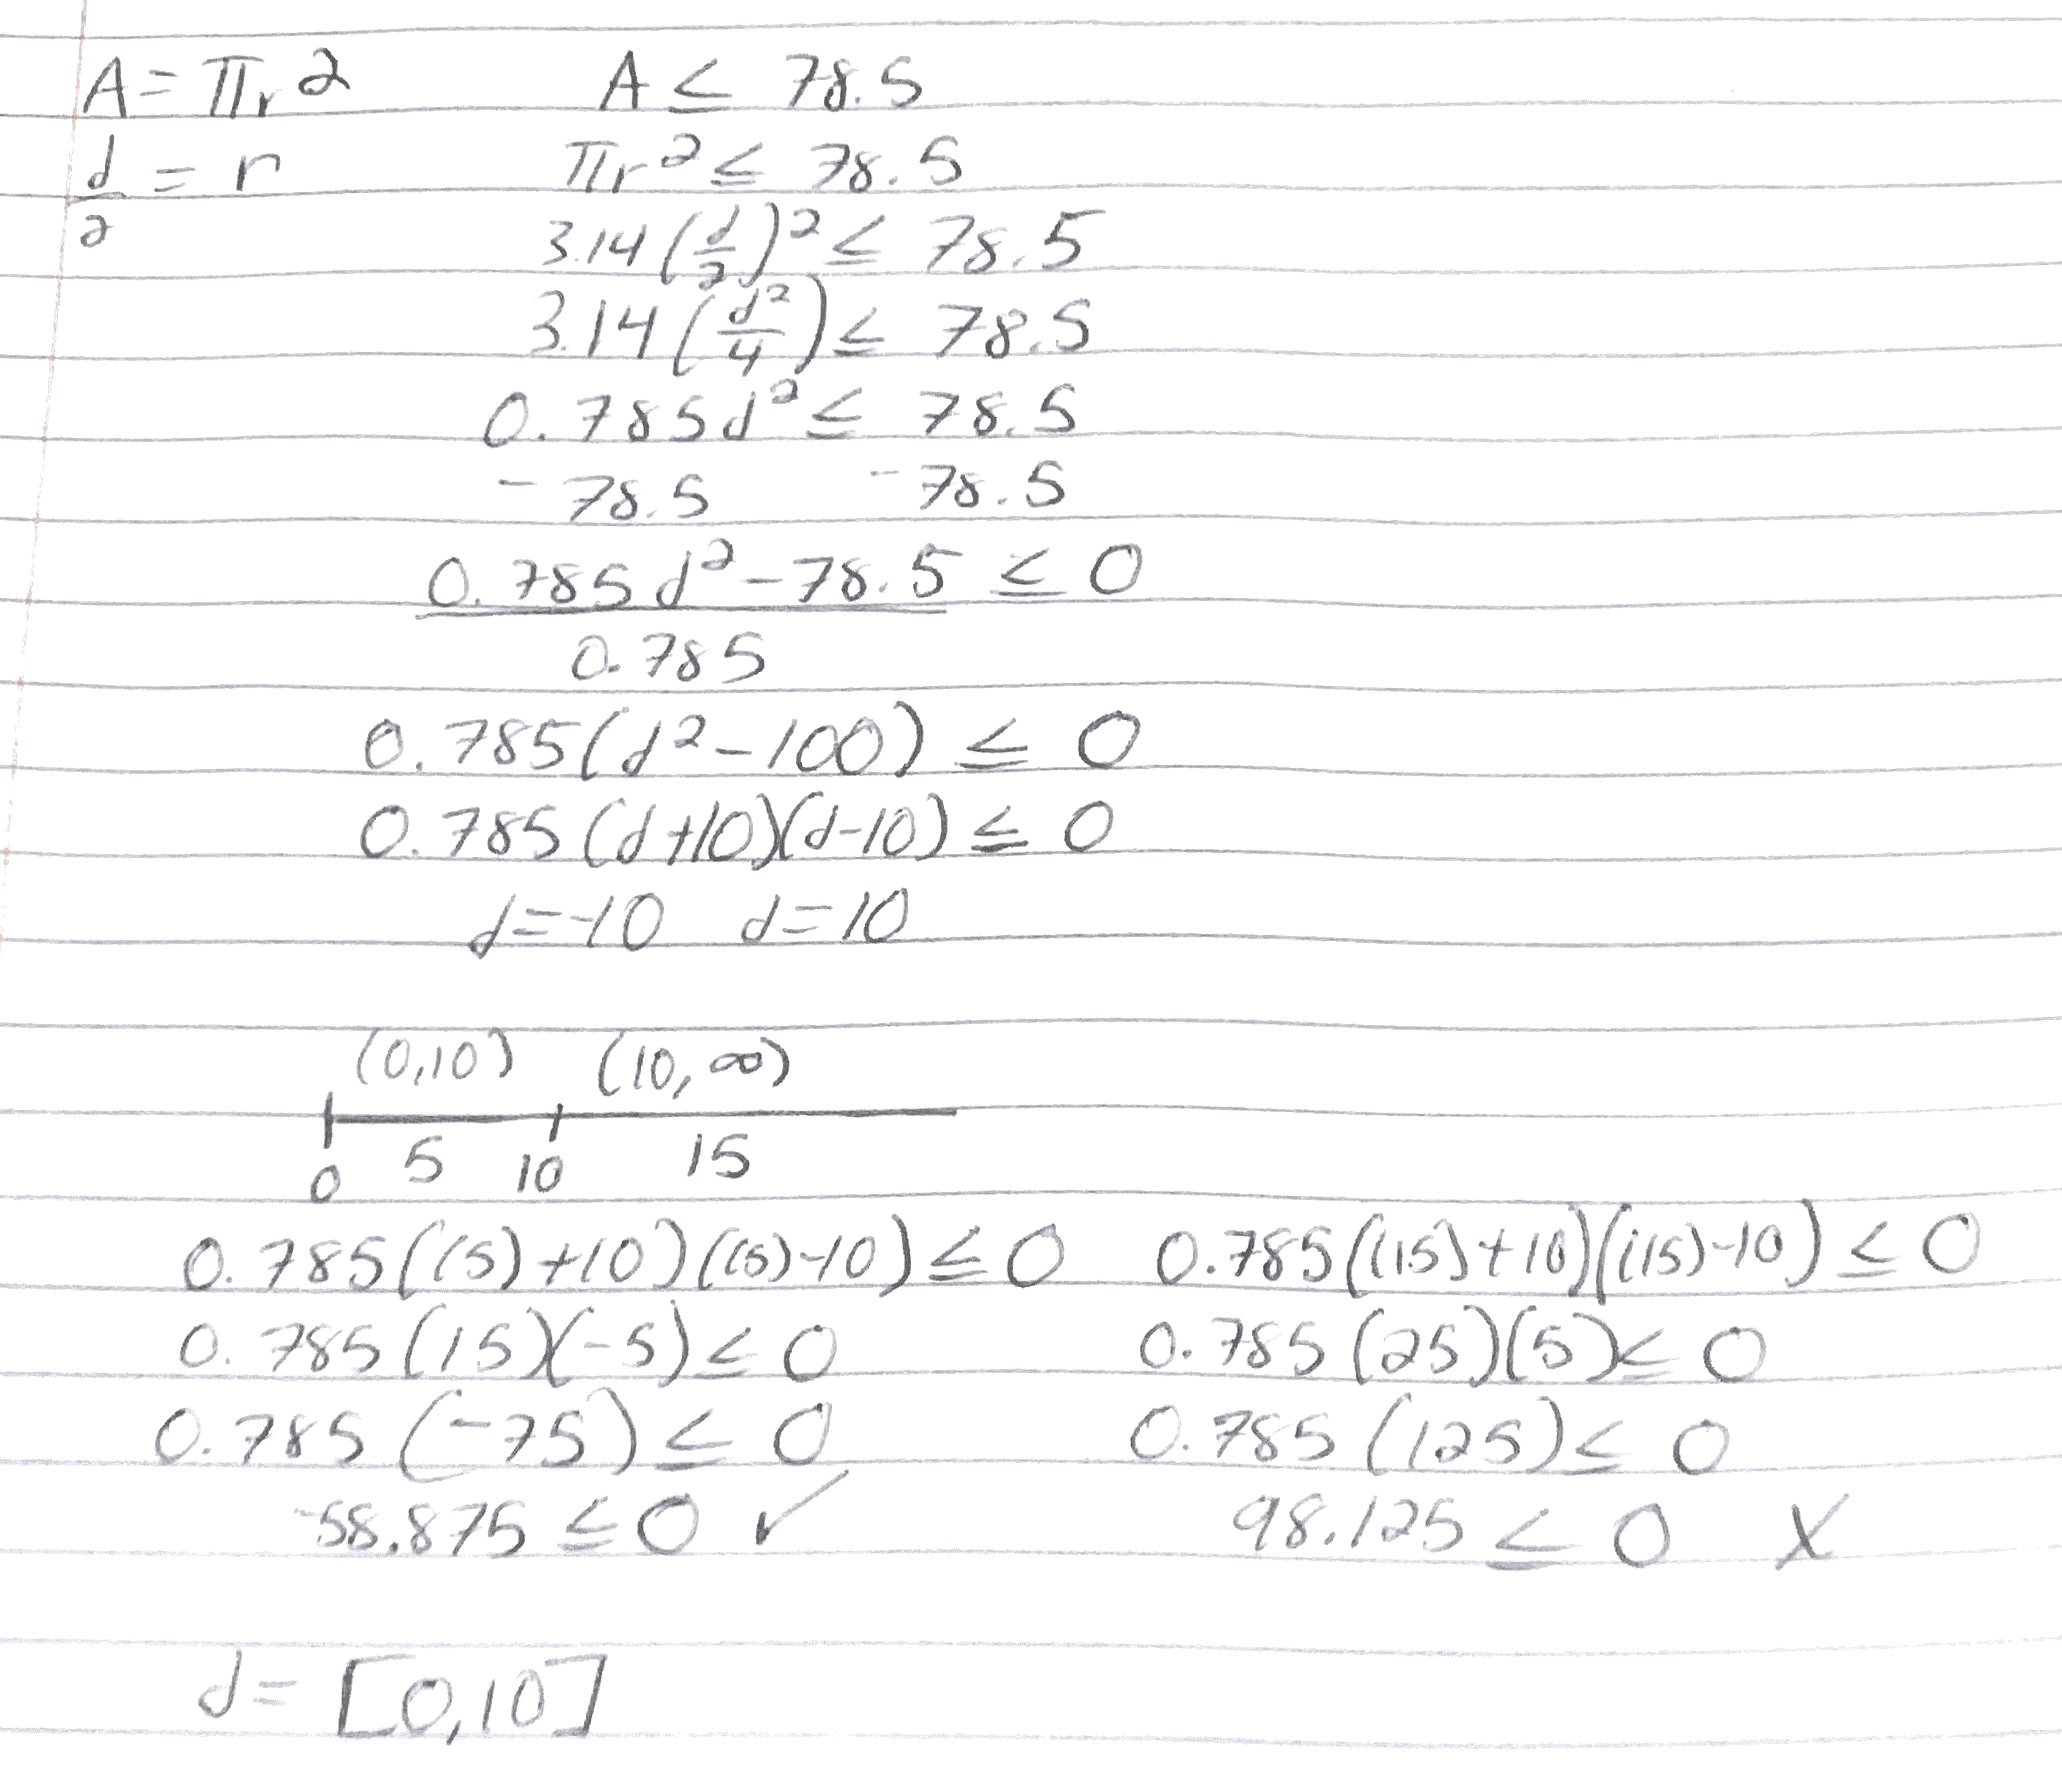 A = πr² A ≤ 78.5
d/2 = r πr² ≤ 78.5
3.14(d/2)² ≤ 78.5
3.14(d²/4) ≤ 78.5
0.785d² ≤ 78.5
-78.5 -78.5
0.785d² - 78.5 ≤ 0
0.785
0.785(d² - 100) ≤ 0
0.785(d+10)(d-10) ≤ 0
d=-10 d=10
(0,10) (10,∞)
0 5 10 15
0.785((5)+10)((5)-10) ≤ 0 0.785((15)+10)((15)-10) ≤ 0
0.785(15)(-5) ≤ 0 0.785(25)(5) ≤ 0
0.785(-75) ≤ 0 0.785(125) ≤ 0
-58.875 ≤ 0 ✓ 98.125 ≤ 0 X
d = [0,10]